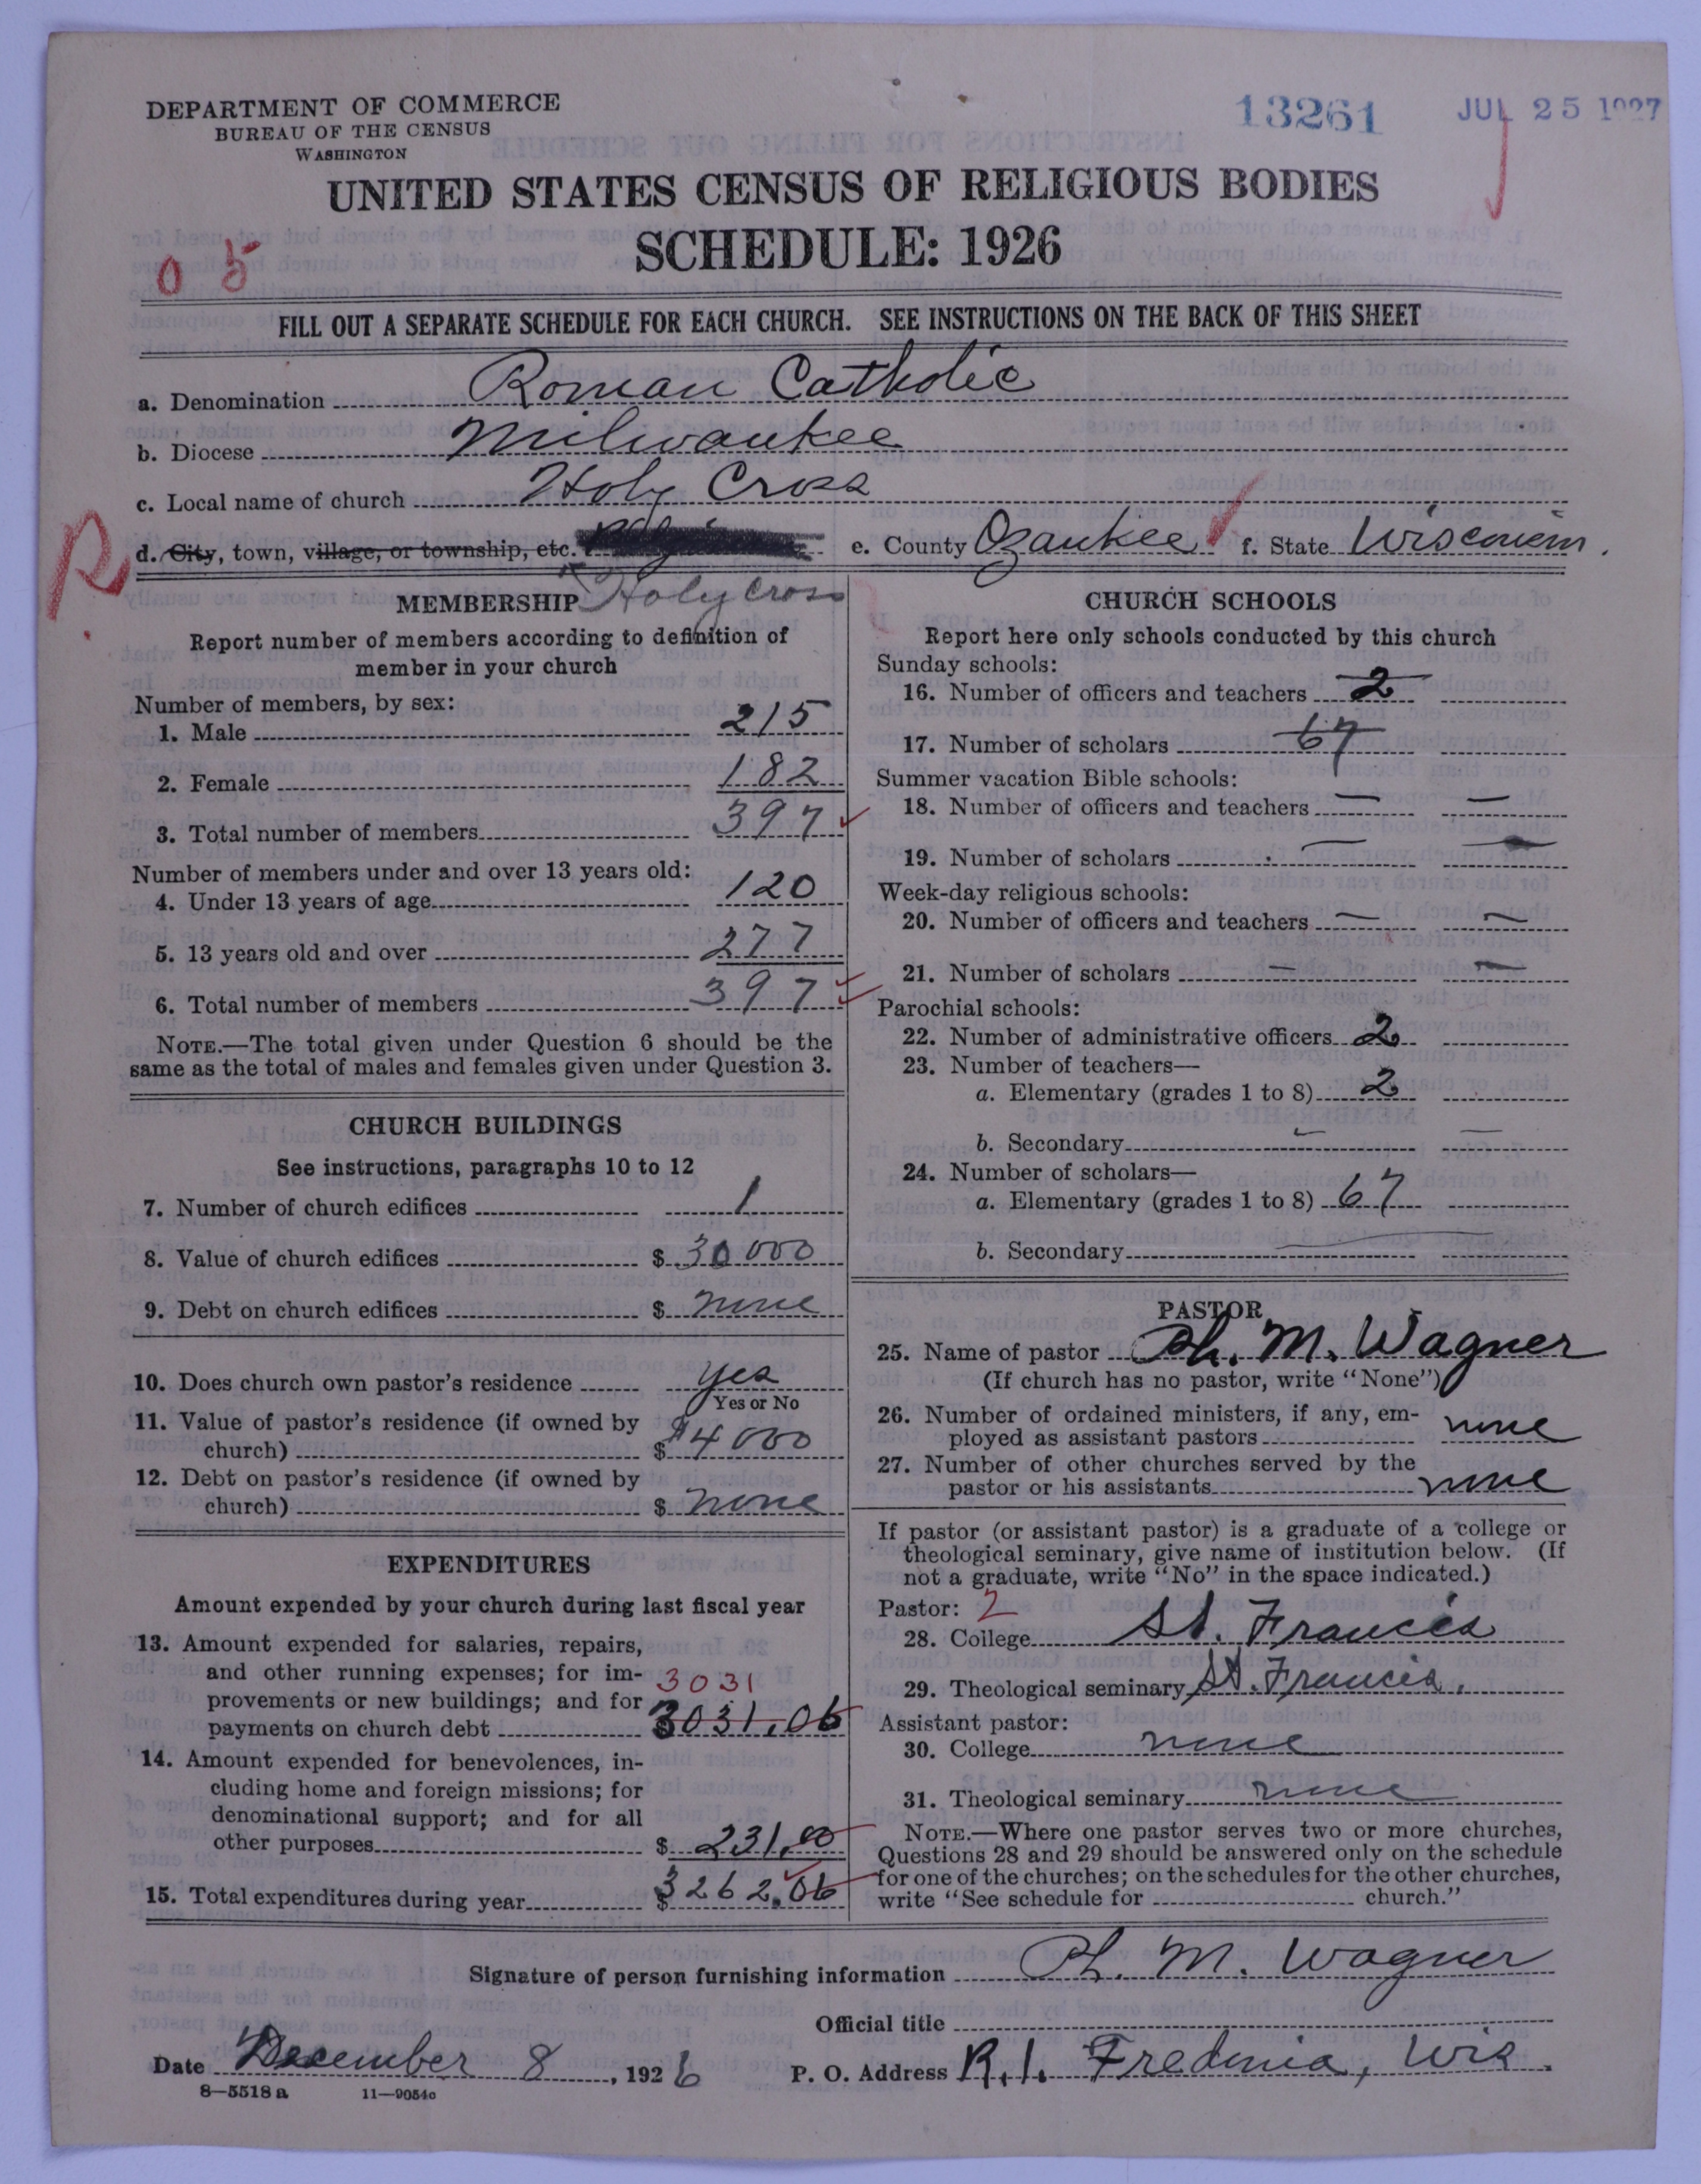 DEPARTMENT OF COMMERCE
BUREAU OF THE CENSUS
WASHINGTON
13261
JUL 25 1927
UNITED STATES CENSUS OF RELIGIOUS BODIES
SCHEDULE: 1926
0 5
FILL OUT A SEPARATE SCHEDULE FOR EACH CHURCH. SEE INSTRUCTIONS ON THE BACK OF THIS SHEET
a. Denomination Roman Catholic
b. Diocese Milwaukee
c. Local name of church Holy Cross
R
d. City, town, village, or township, etc. Holy Cross
e. County Ozaukee f. State Wisconsin.
MEMBERSHIP
Report number of members according to definition of
member in your church
Number of members, by sex:
1. Male 215
2. Female 182
3. Total number of members 397
Number of members under and over 13 years old:
4. Under 13 years of age 120
5. 13 years old and over 277
6. Total number of members 397
NOTE.—The total given under Question 6 should be the
same as the total of males and females given under Question 3.
CHURCH BUILDINGS
See instructions, paragraphs 10 to 12
7. Number of church edifices 1
8. Value of church edifices $ 30 000
9. Debt on church edifices $ none
10. Does church own pastor's residence yes
Yes or No
11. Value of pastor's residence (if owned by
church) $ $4 000
12. Debt on pastor's residence (if owned by
church) $ none
EXPENDITURES
Amount expended by your church during last fiscal year
13. Amount expended for salaries, repairs,
and other running expenses; for im-
provements or new buildings; and for
3031
payments on church debt $ 3031.06
14. Amount expended for benevolences, in-
cluding home and foreign missions; for
denominational support; and for all
other purposes $ 231.00
15. Total expenditures during year $ 3262.06
CHURCH SCHOOLS
Report here only schools conducted by this church
Sunday schools:
16. Number of officers and teachers 2
17. Number of scholars 67
Summer vacation Bible schools:
18. Number of officers and teachers — —
19. Number of scholars — —
Week-day religious schools:
20. Number of officers and teachers — —
21. Number of scholars — —
Parochial schools:
22. Number of administrative officers 2
23. Number of teachers—
a. Elementary (grades 1 to 8) 2
b. Secondary — —
24. Number of scholars—
a. Elementary (grades 1 to 8) 67
b. Secondary —
PASTOR
25. Name of pastor Ph. M. Wagner
(If church has no pastor, write "None")
26. Number of ordained ministers, if any, em-
ployed as assistant pastors none
27. Number of other churches served by the
pastor or his assistants none
If pastor (or assistant pastor) is a graduate of a college or
theological seminary, give name of institution below. (If
not a graduate, write "No" in the space indicated.)
Pastor: 2
28. College St. Francis
29. Theological seminary St. Francis.
Assistant pastor:
30. College none
31. Theological seminary none
NOTE.—Where one pastor serves two or more churches,
Questions 28 and 29 should be answered only on the schedule
for one of the churches; on the schedules for the other churches,
write "See schedule for church."
Signature of person furnishing information Ph. M. Wagner
Official title
Date December 8, 1926 P. O. Address R.1. Fredonia, Wis.
8—5518 a 11—9054c